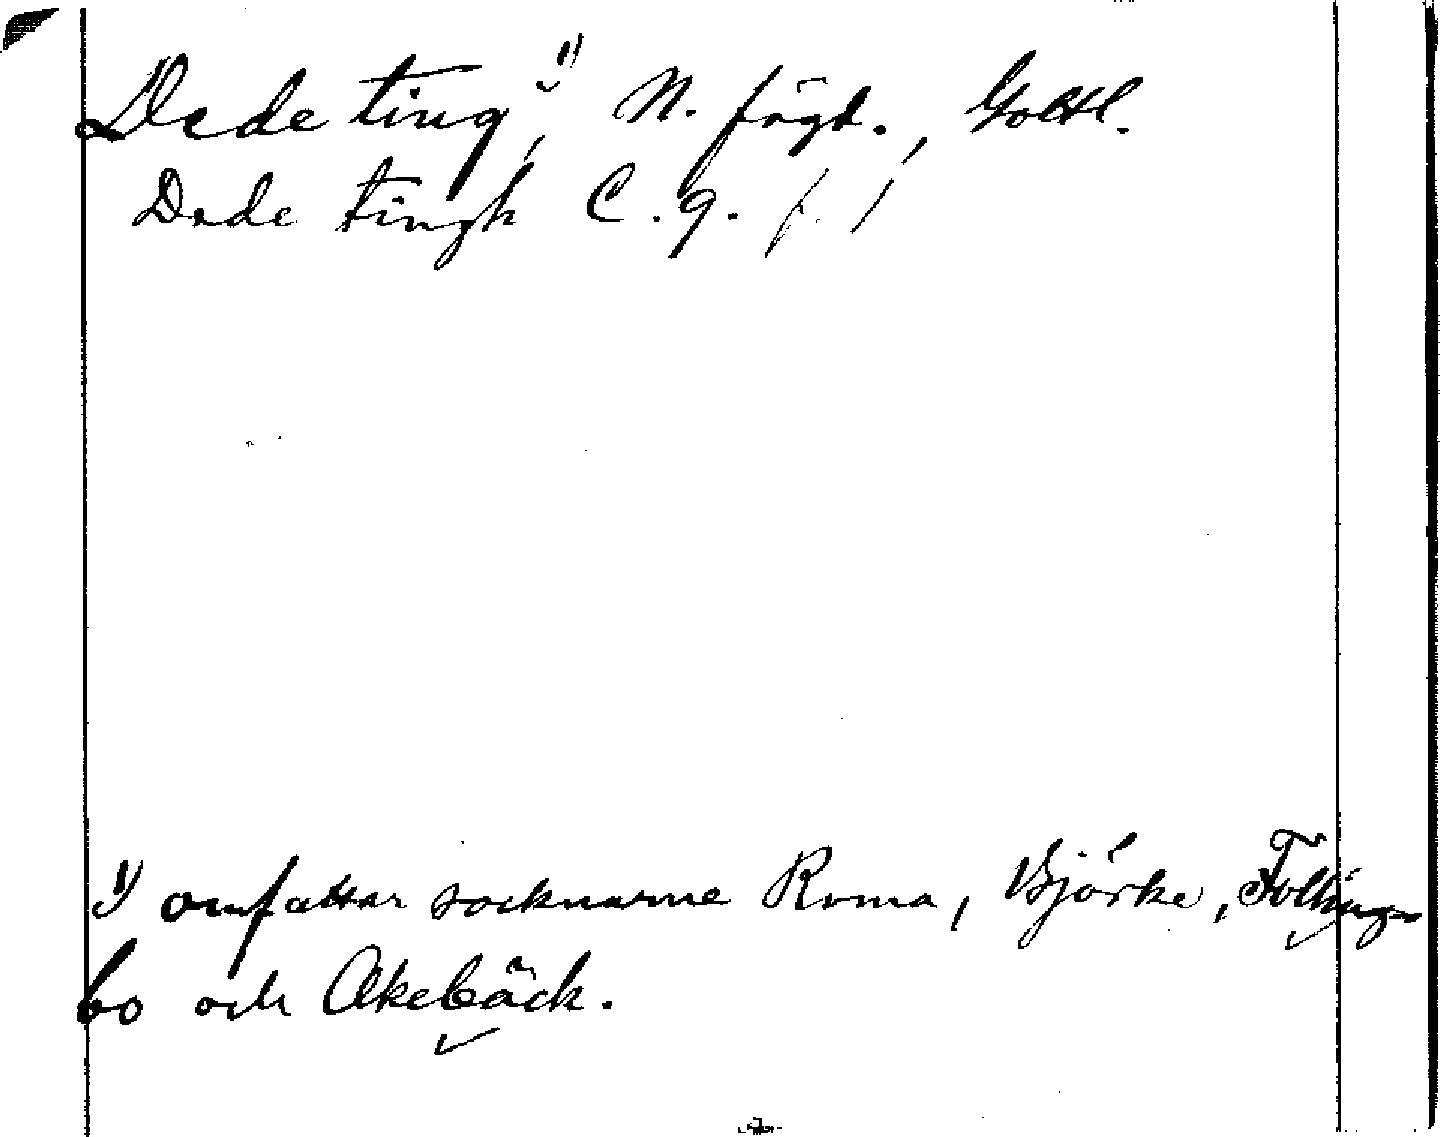 Dede ting ¹⁾, N. fögd., Gottl.
Dede tingh C. 9. f. 1
¹⁾ omfattar socknarne Roma, Björke, Follinge-
bo och Akebäck.